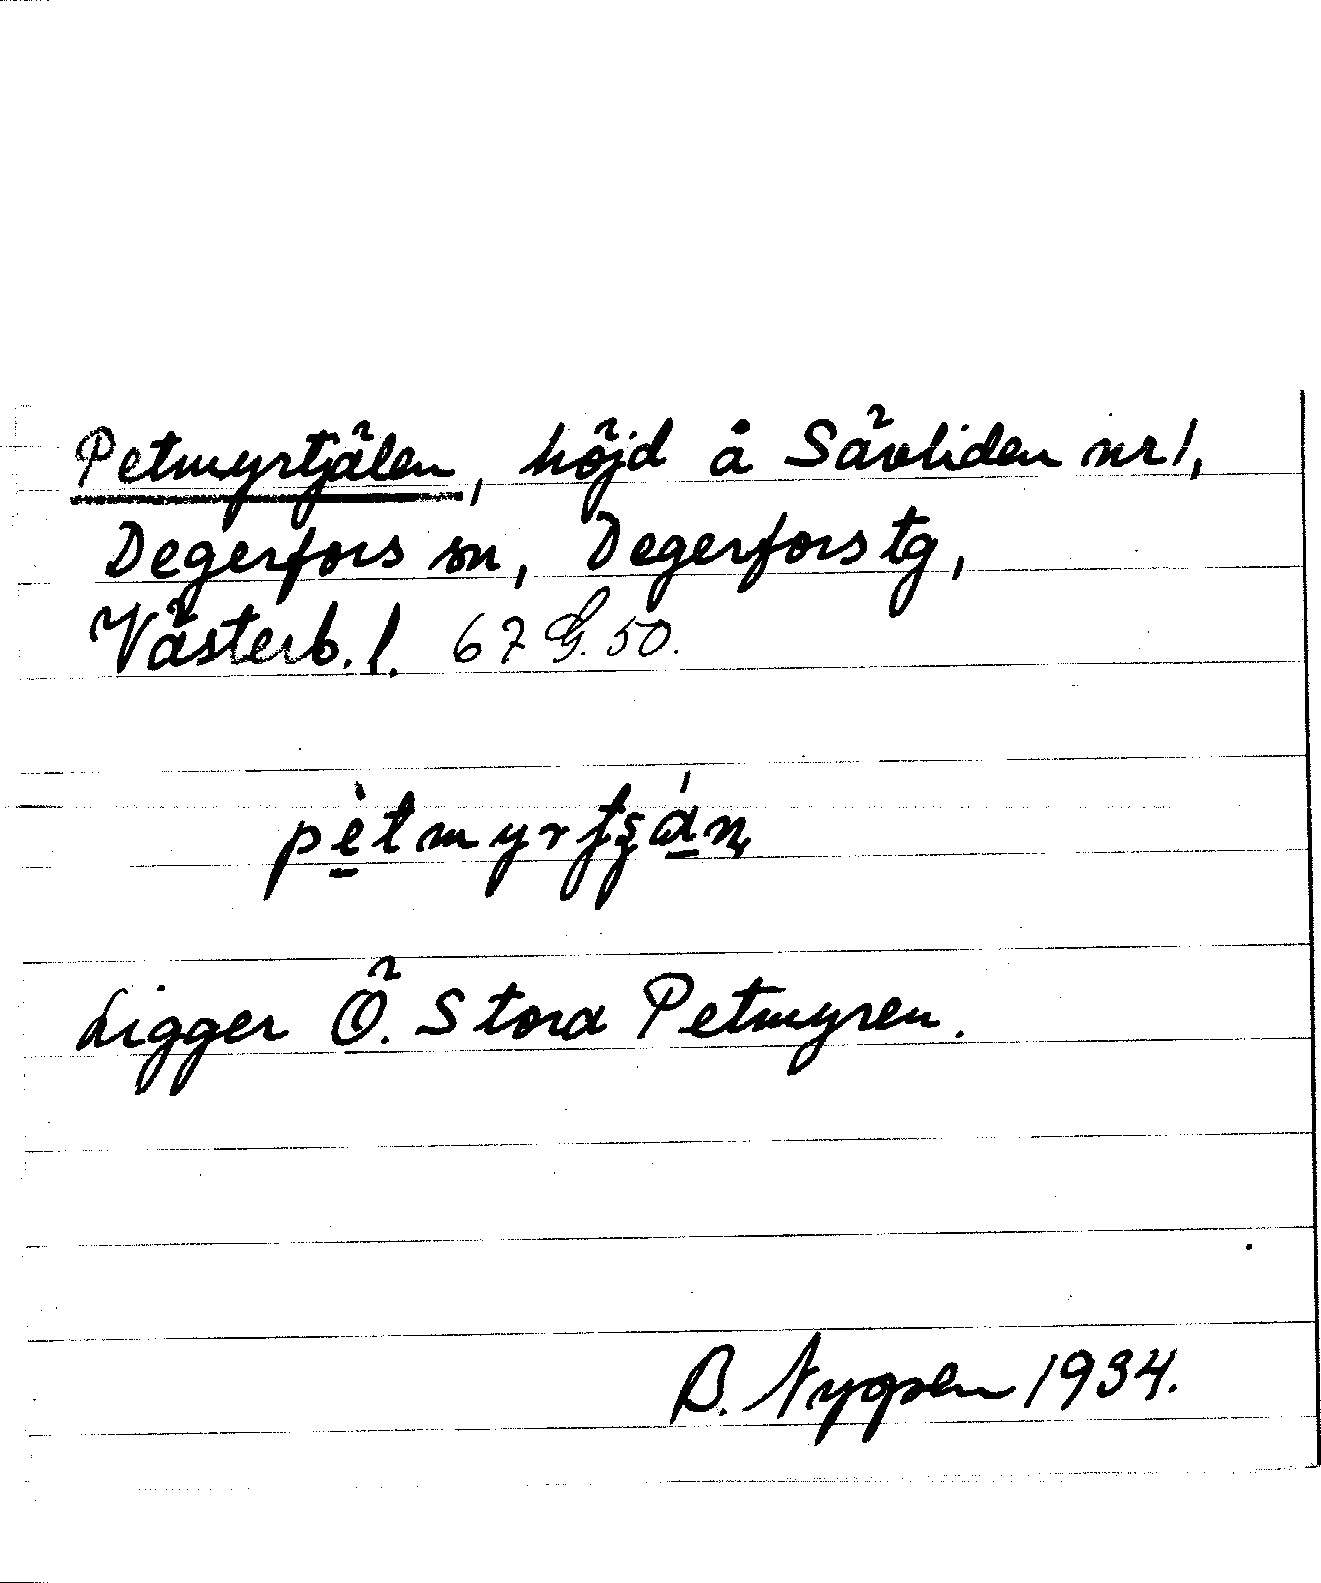 Petmyrtjälen, höjd å Sävliden nr 1,
Degerfors sn, Degerfors tg,
Västerb. l. 67 G. 50.
Ligger Ö. Stora Petmyren.
B. Nygren 1934.